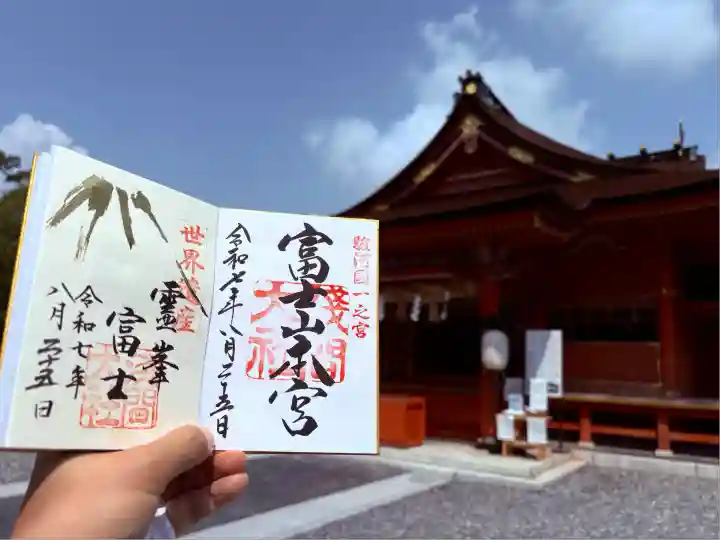 駿河国一之宮
富士山本宮
浅間大社
令和七年八月二十五日
世界遺産
霊峯
富士
浅間大社
令和七年
八月二十五日